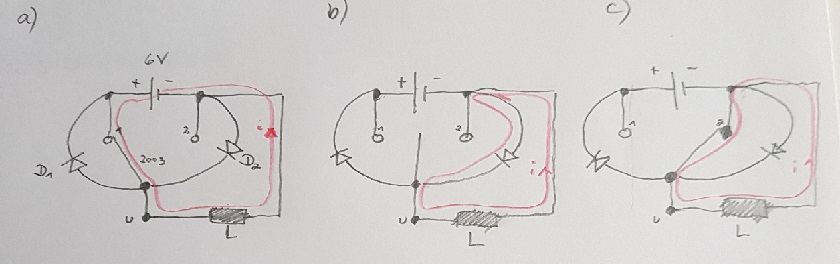 a)
6V
+ -
1 2
i
2003
D1 D2
u
L
b)
+ -
1 2
i
u
L
c)
+ -
1 2
i
u
L